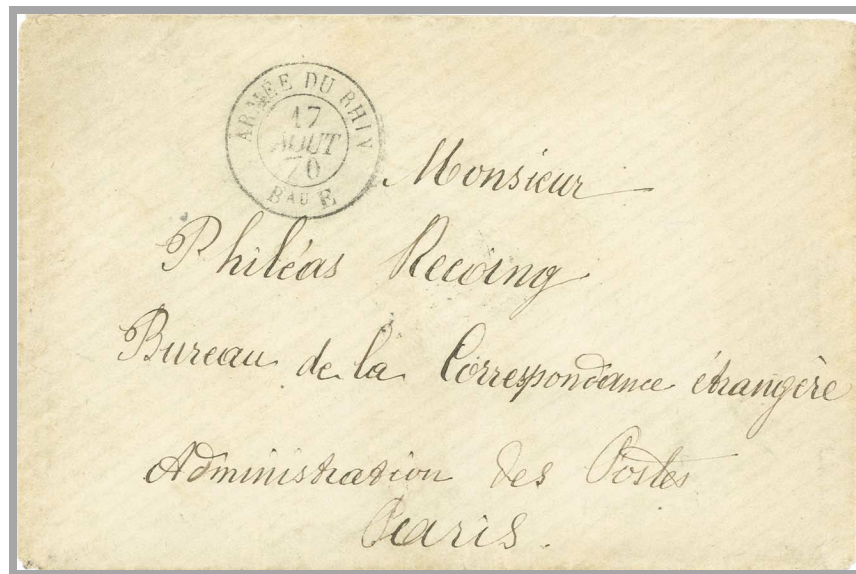 ARMÉE DU RHIN
17
AOUT
70
BAU E
Monsieur
Philéas Recoing
Bureau de la Correspondance étrangère
Administration des Postes
Paris.